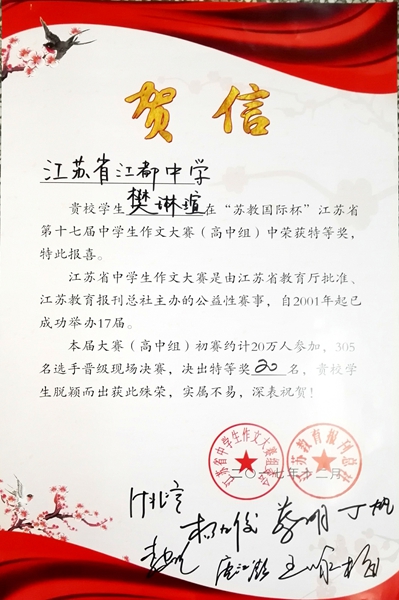 贺信
江苏省江都中学
贵校学生樊琳瑄在“苏教国际杯”江苏省
第十七届中学生作文大赛（高中组）中荣获特等奖，
特此报喜。
江苏省中学生作文大赛是由江苏省教育厅批准、
江苏教育报刊总社主办的公益性赛事，自2001年起已
成功举办17届。
本届大赛（高中组）初赛约计20万人参加，305
名选手晋级现场决赛，决出特等奖20名，贵校学
生脱颖而出获此殊荣，实属不易，深表祝贺！
江苏省中学生作文大赛组委会
江苏教育报刊总社
二〇一七年十二月
丁帆